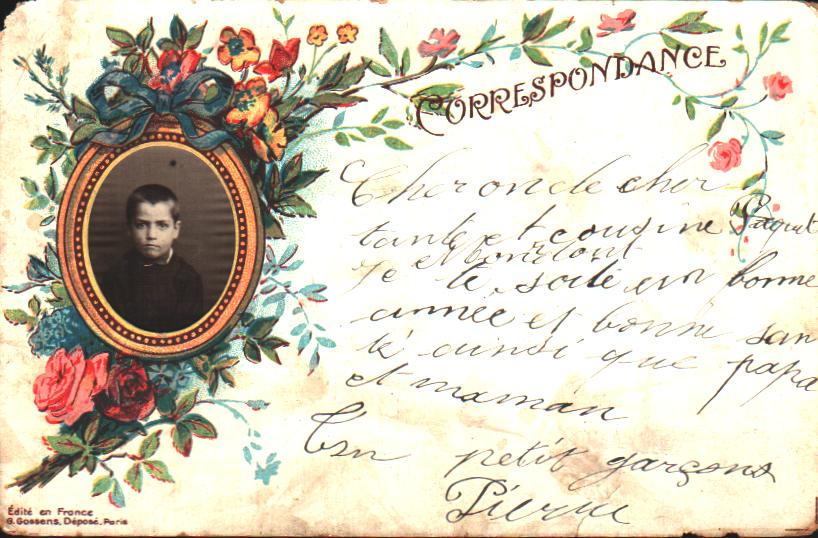 CORRESPONDANCE
Cher oncle cher
tante et cousine Paquit
et bonjour
Je te soite une bonne
année et bonne san
té ainsi que papa
et maman
Ton petit garçons
Pierre
Édité en France
G. Gossens, Déposé, Paris